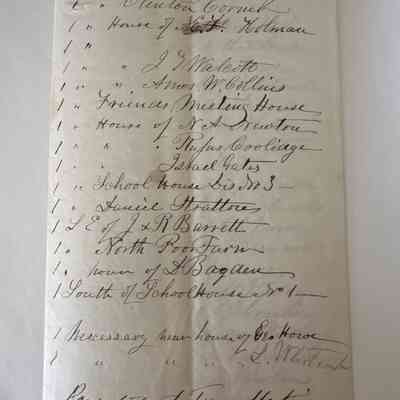 1 " Newton Corner
1 " House of Holman
1 "
1 " " J G Walcott
1 " " Amos W. Collins
1 " Friends Meeting House
1 " House of N A Newton
1 " " " Rufus Coolidge
1 " " " Israel Gates
1 " School House Dis No 3 —
1 " Daniel Strattons
1 S E of J & R Barrett
1 " North Poor Farm
1 " house of D Bagden
1 South of School House No 1 —
1 Necessary near house of Geo Howe
1 " " " " L.